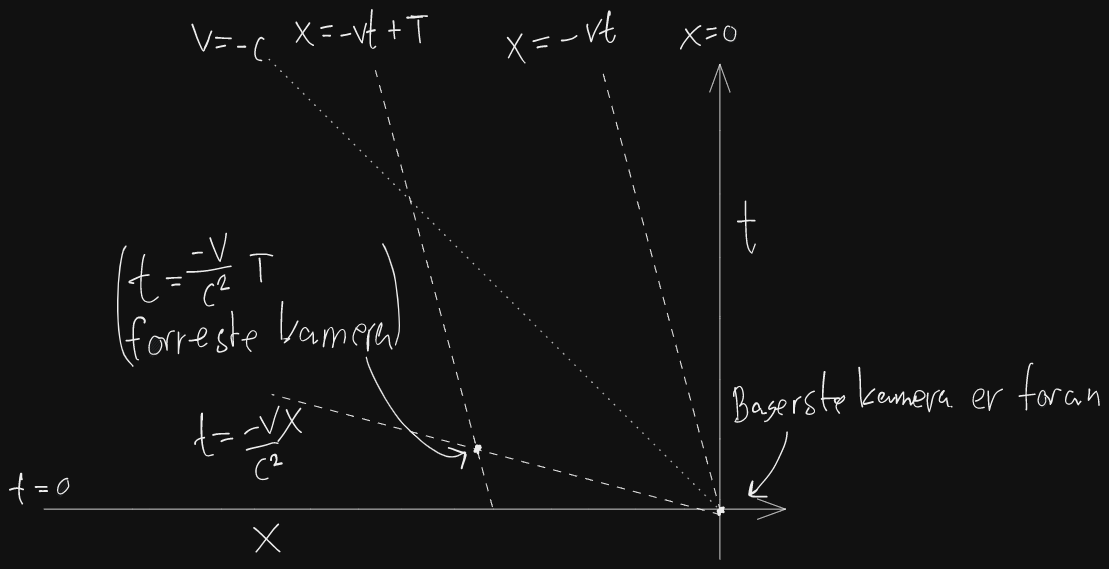 V=-c
x=-vt+T
x=-vt
x=0
t
(t = -V/c² T
forreste kamera)
Bagerste kamera er foran
t = -VX/c²
t=0
X